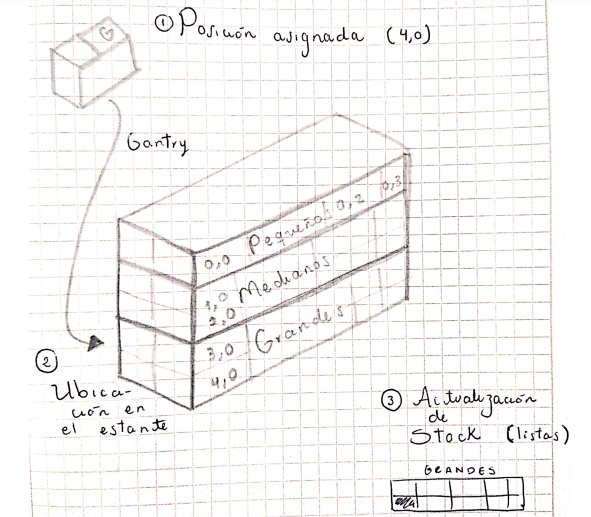 ① Posición asignada (4,0)
G
Gantry
0,0 Pequeños 0,2 0,3
1,0 Medianos
2,0
3,0 Grandes
4,0
②
Ubica-
ción en
el estante
③ Actualización
de
Stock (listas)
GRANDES